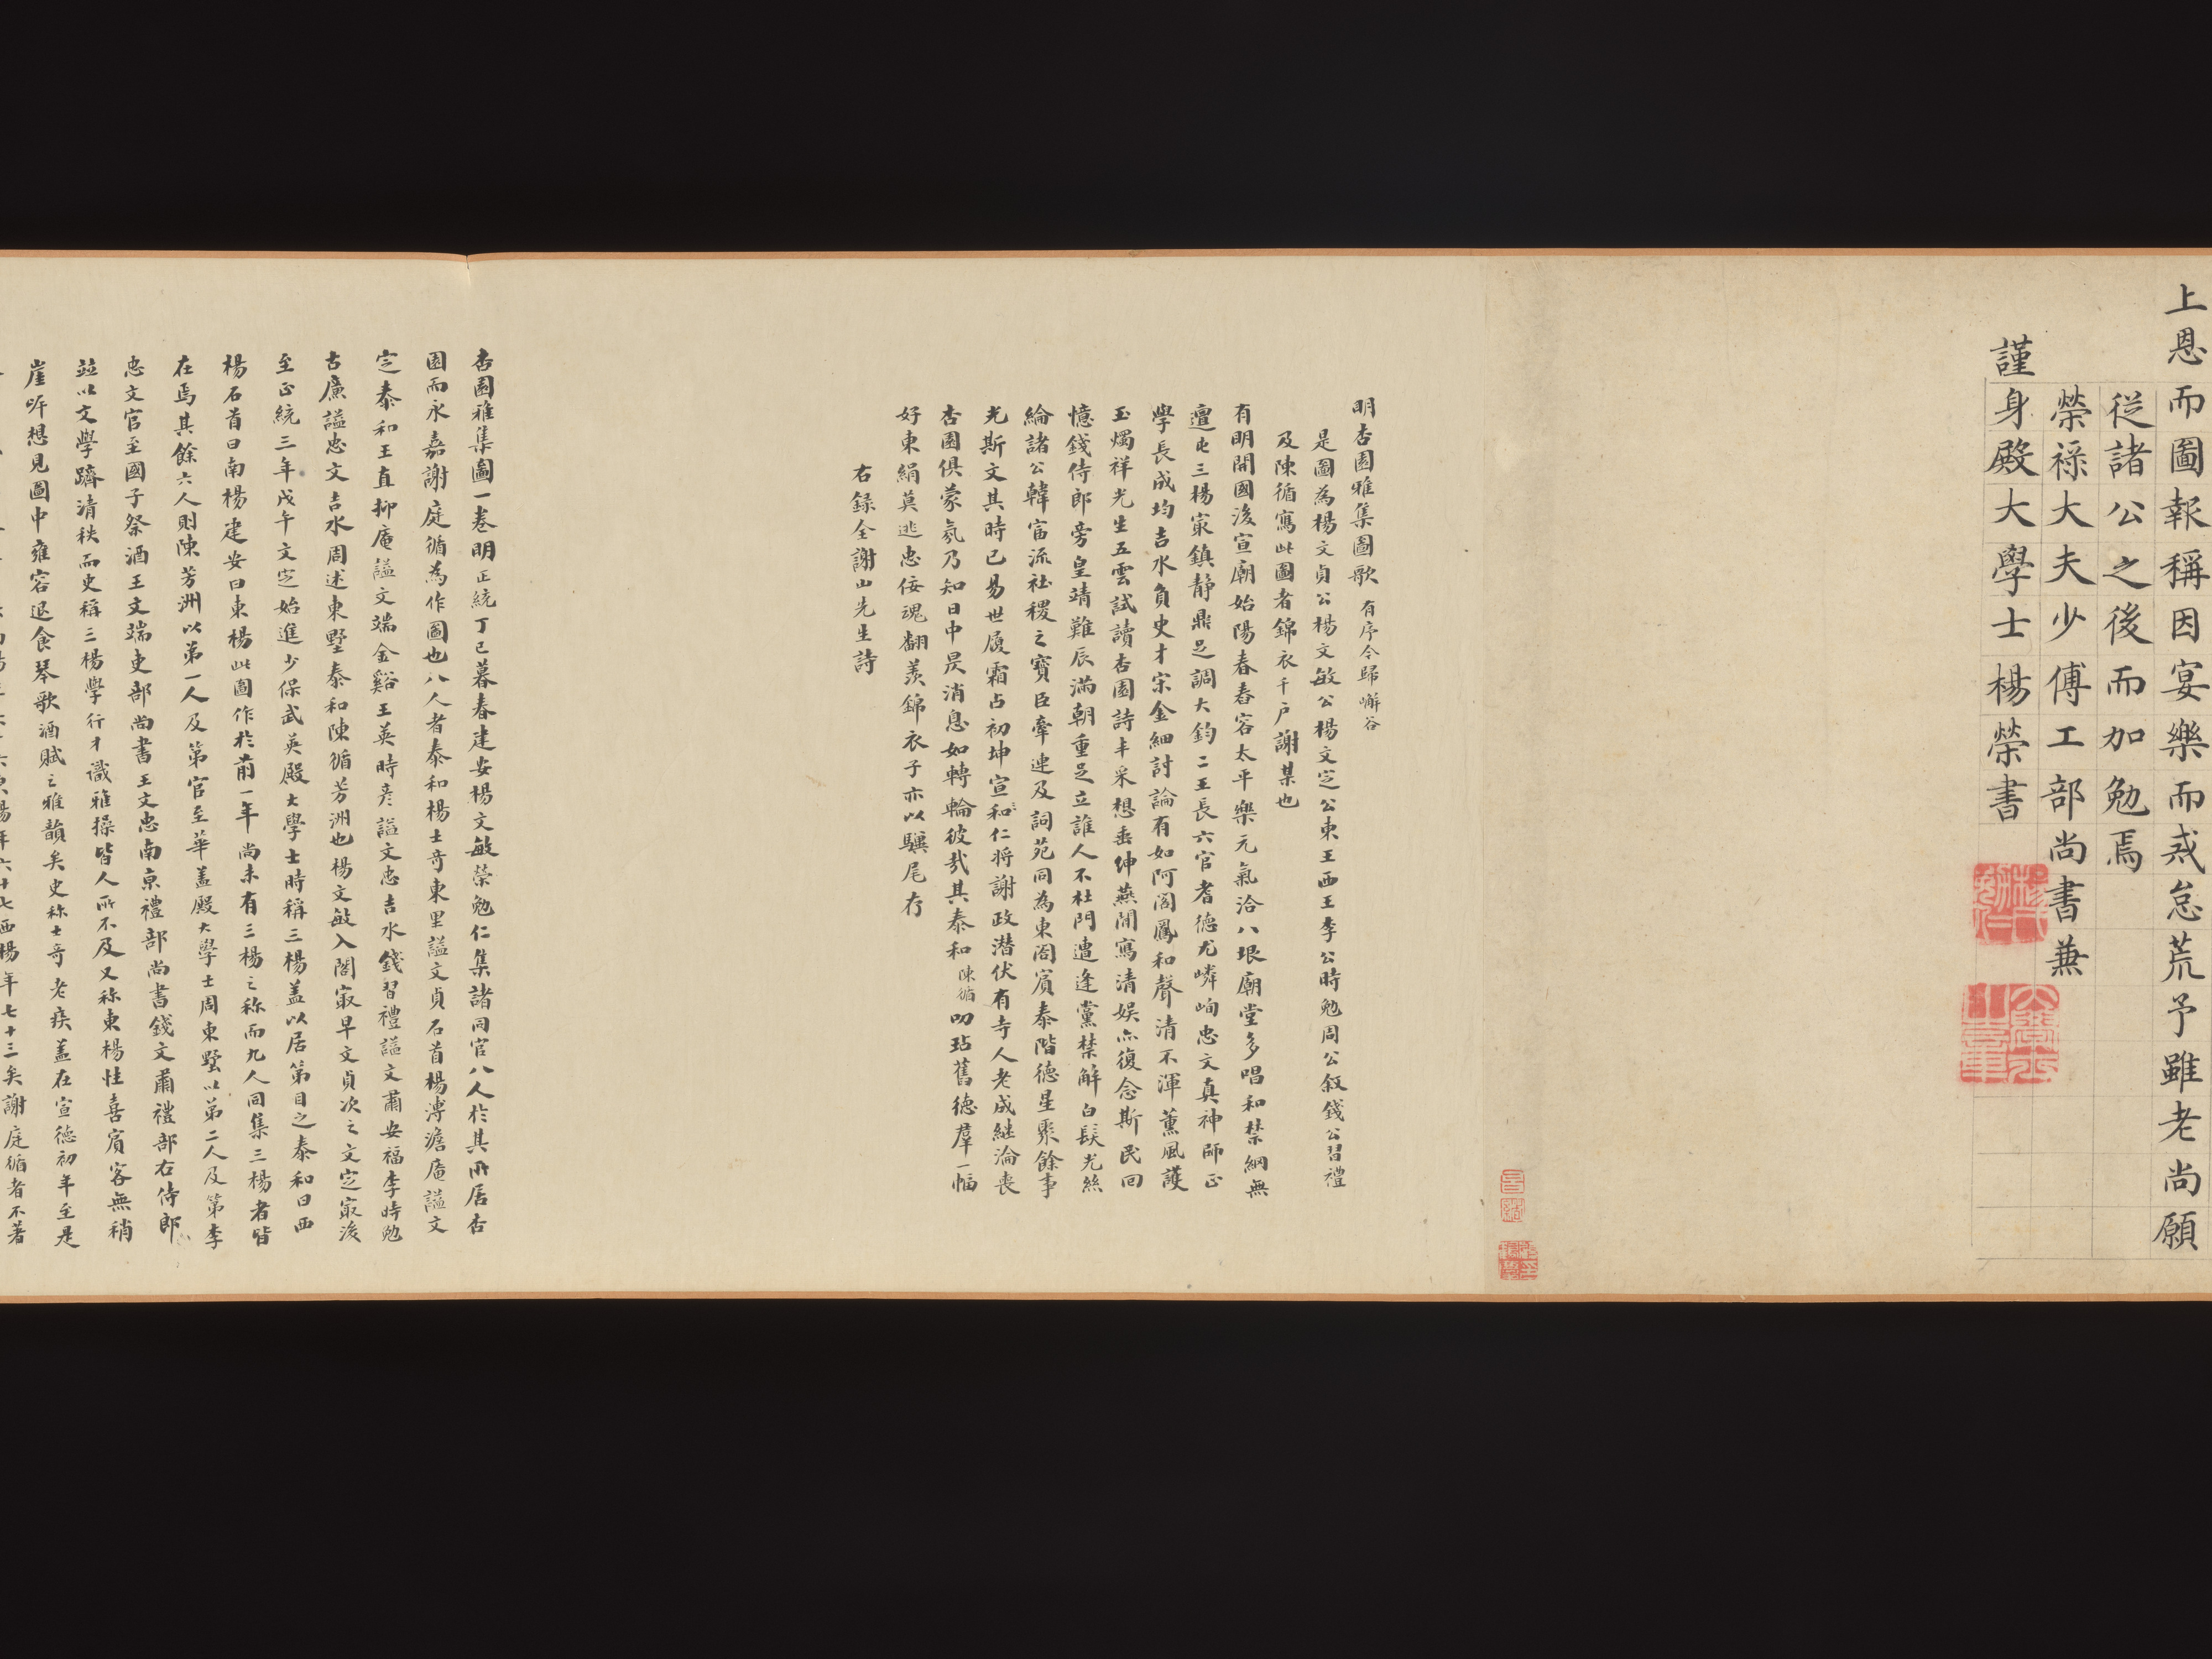 上恩而圖報稱因宴樂而戒怠荒予雖老尚願
從諸公之後而加勉焉
榮祿大夫少傅工部尚書兼
謹身殿大學士楊榮書
明杏園雅集圖歌 有序今歸嶰谷
是圖為楊文貞公楊文敏公楊文定公東王西王李公時勉周公叙錢公習禮
及陳循寫此圖者錦衣千戶謝某也
有明開國後宣廟始陽春春容太平樂元氣洽八垠廟堂多唱和禁網無
邅屯三楊㝡鎮静鼎足調大鈞二王長六官耆德尤嶙峋忠文真神師正
學長成均吉水負史才宋金細討論有如阿閣鳳和聲清不渾薰風護
玉燭祥光生五雲試讀杏園詩丰采想垂紳燕閒寫清娱亦復念斯民回
憶錢侍郎旁皇靖難辰滿朝重足立誰人不杜門遭逢黨禁解白髮尤絲
綸諸公韓富流社稷之寶臣牽連及詞苑同為東閣賓泰階德星聚餘事
光斯文其時已易世履霜占初坤宣和仁将謝政潜伏有寺人老成継淪喪
杏園俱蒙氛乃知日中昃消息如轉輪彼哉其泰和陳循叨玷舊德羣一幅
好東絹莫逃忠佞魂翻羨錦衣子亦以驥尾存
右録全謝山先生詩
杏園雅集圖一卷明正統丁巳暮春建安楊文敏榮勉仁集諸同官八人於其所居杏
園而永嘉謝庭循為作圖也八人者泰和楊士竒東里謚文貞石首楊溥澹庵謚文
定泰和王直抑庵謚文端金谿王英時彦謚文忠吉水錢習禮謚文肅安福李時勉
古廉謚忠文吉水周述東墅泰和陳循芳洲也楊文敏入閣㝡早文貞次之文定㝡後
至正統三年戊午文定始進少保武英殿大學士時稱三楊盖以居第目之泰和曰西
楊石首曰南楊建安曰東楊此圖作於前一年尚未有三楊之称而九人同集三楊者皆
在焉其餘六人則陳芳洲以第一人及第官至華盖殿大學士周東墅以第二人及第李
忠文官至國子祭酒王文端吏部尚書王文忠南京禮部尚書錢文肅禮部右侍郎
竝以文學躋清秩而史稱三楊學行才識雅操皆人所不及又称東楊性喜賓客無稍
崖岸想見圖中雍容退食琴歌酒賦之雅韻矣史称士竒老疾盖在宣德初年至是
楊年六十七西楊年七十三矣謝庭循者不著